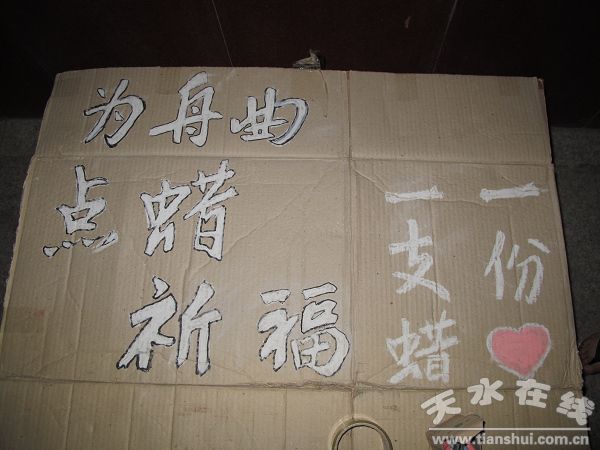 为舟曲
点蜡
祈福
一支蜡
一份
天水在线
www.tianshui.com.cn